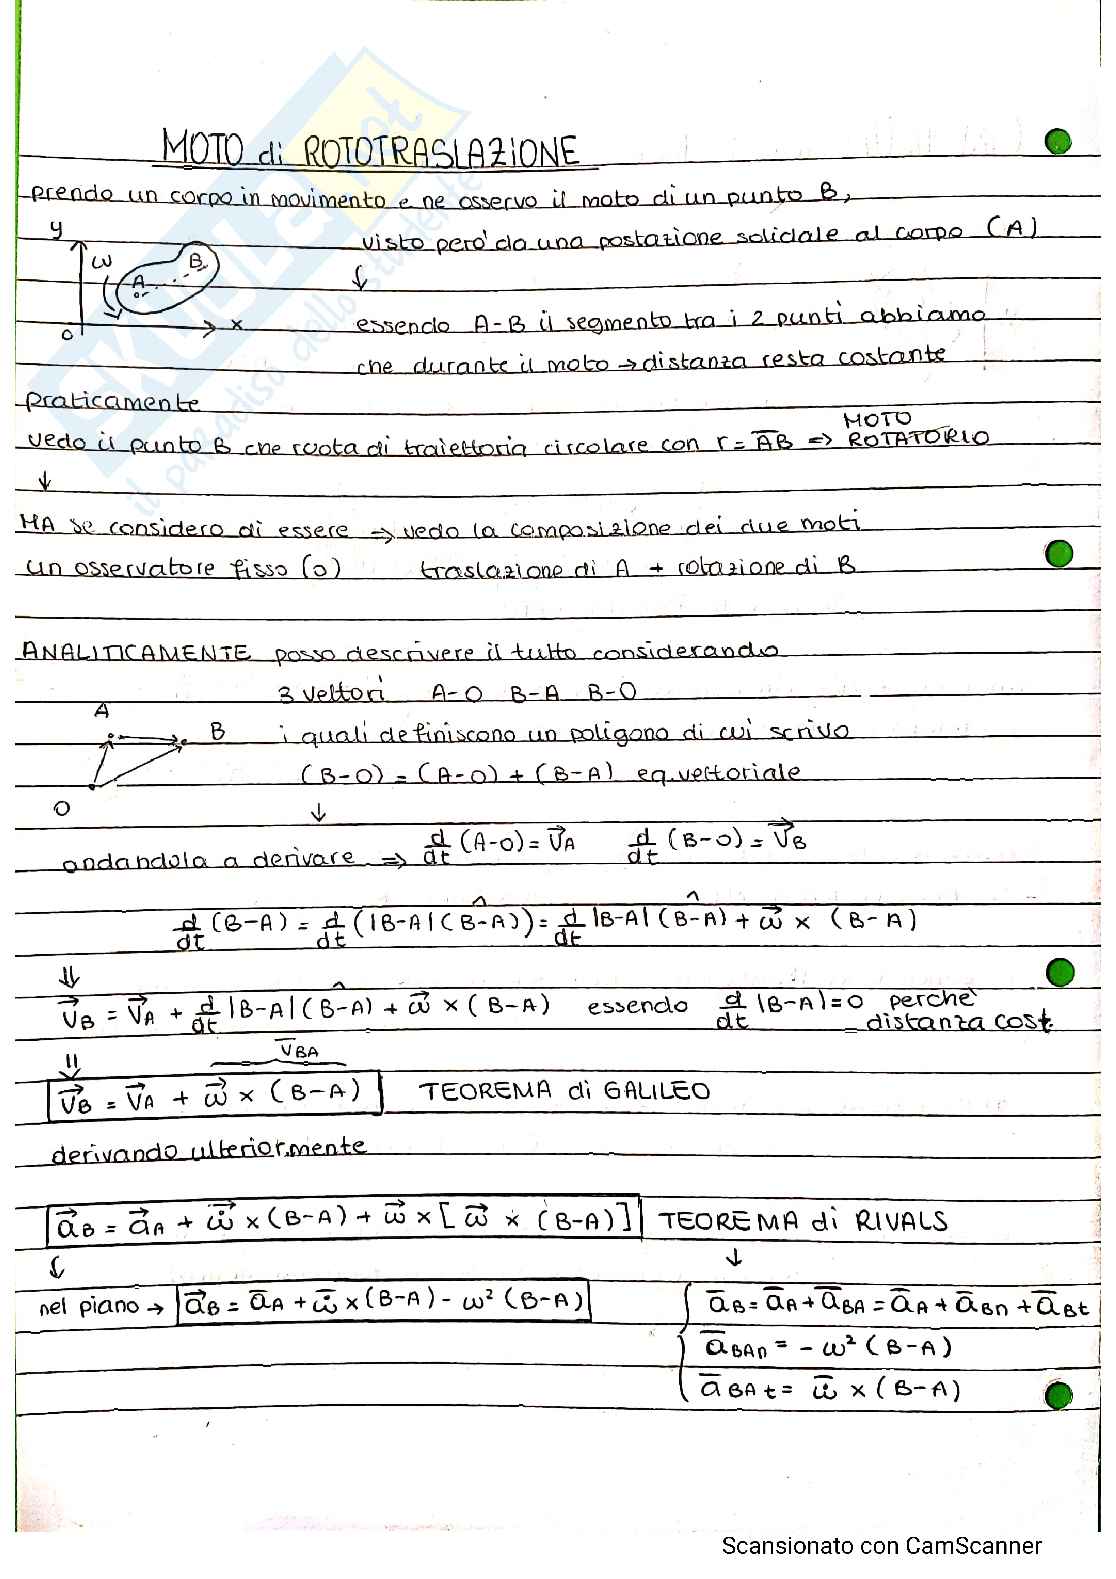 MOTO di ROTOTRASLAZIONE
prendo un corpo in movimento e ne osservo il moto di un punto B,
visto però da una postazione solidale al corpo (A)
y
ω
A
B
x
O
↓
essendo A-B il segmento tra i 2 punti abbiamo
che durante il moto → distanza resta costante
praticamente
vedo il punto B che ruota di traiettoria circolare con r = \overline{AB} ⇒ MOTO ROTATORIO
↓
MA se considero di essere → vedo la composizione dei due moti
un osservatore fisso (O) traslazione di A + rotazione di B
ANALITICAMENTE posso descrivere il tutto considerando
3 vettori A-O B-A B-O
A
B
O
i quali definiscono un poligono di cui scrivo
(B-O) = (A-O) + (B-A) eq. vettoriale
↓
andandola a derivare ⇒ d/dt (A-O) = \vec{V}_A d/dt (B-O) = \vec{V}_B
d/dt (B-A) = d/dt (|B-A| \widehat{(B-A)}) = d/dt |B-A| \widehat{(B-A)} + \vec{ω} × (B-A)
⇓
\vec{V}_B = \vec{V}_A + d/dt |B-A| \widehat{(B-A)} + \vec{ω} × (B-A) essendo d/dt |B-A| = 0 perchè distanza cost.
⇓
\overline{V}_{BA}
\vec{V}_B = \vec{V}_A + \vec{ω} × (B-A) TEOREMA di GALILEO
derivando ulteriormente
\vec{a}_B = \vec{a}_A + \vec{\dot{ω}} × (B-A) + \vec{ω} × [\vec{ω} × (B-A)] TEOREMA di RIVALS
↓ ↓
nel piano → \vec{a}_B = \overline{a}_A + \overline{\dot{ω}} × (B-A) - ω² (B-A)
\overline{a}_B = \overline{a}_A + \overline{a}_{BA} = \overline{a}_A + \overline{a}_{Bn} + \overline{a}_{Bt}
\overline{a}_{BAn} = - ω² (B-A)
\overline{a}_{BAt} = \overline{\dot{ω}} × (B-A)
SKUOLA.net
il paradiso dello studente
Scansionato con CamScanner